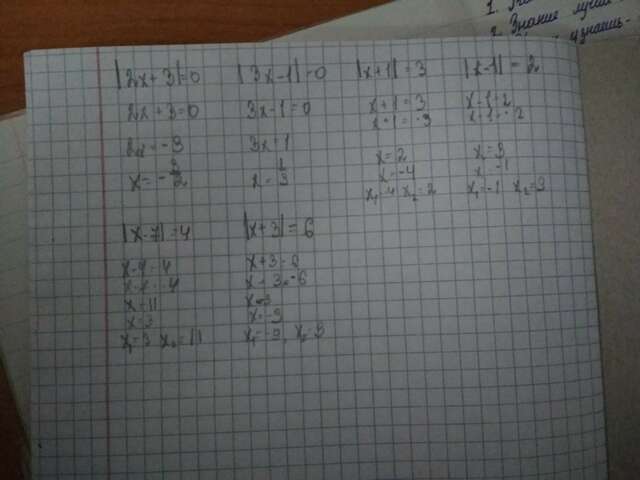 1.
2. Знание лучи
узнаешь-
|2x+3|=0
2x+3=0
2x=-3
x=-3/2
|3x-1|=0
3x-1=0
3x=1
x=1/3
|x+1|=3
x+1=3
x+1=-3
x=2
x=-4
x₁=-4 x₂=2
|x-1|=2
x-1=2
x-1=-2
x=3
x=-1
x₁=-1 x₂=3
|x-7|=4
x-7=4
x-7=-4
x=11
x=3
x₁=3 x₂=11
|x+3|=6
x+3=6
x+3=-6
x=3
x=-9
x₁=-9, x₂=3